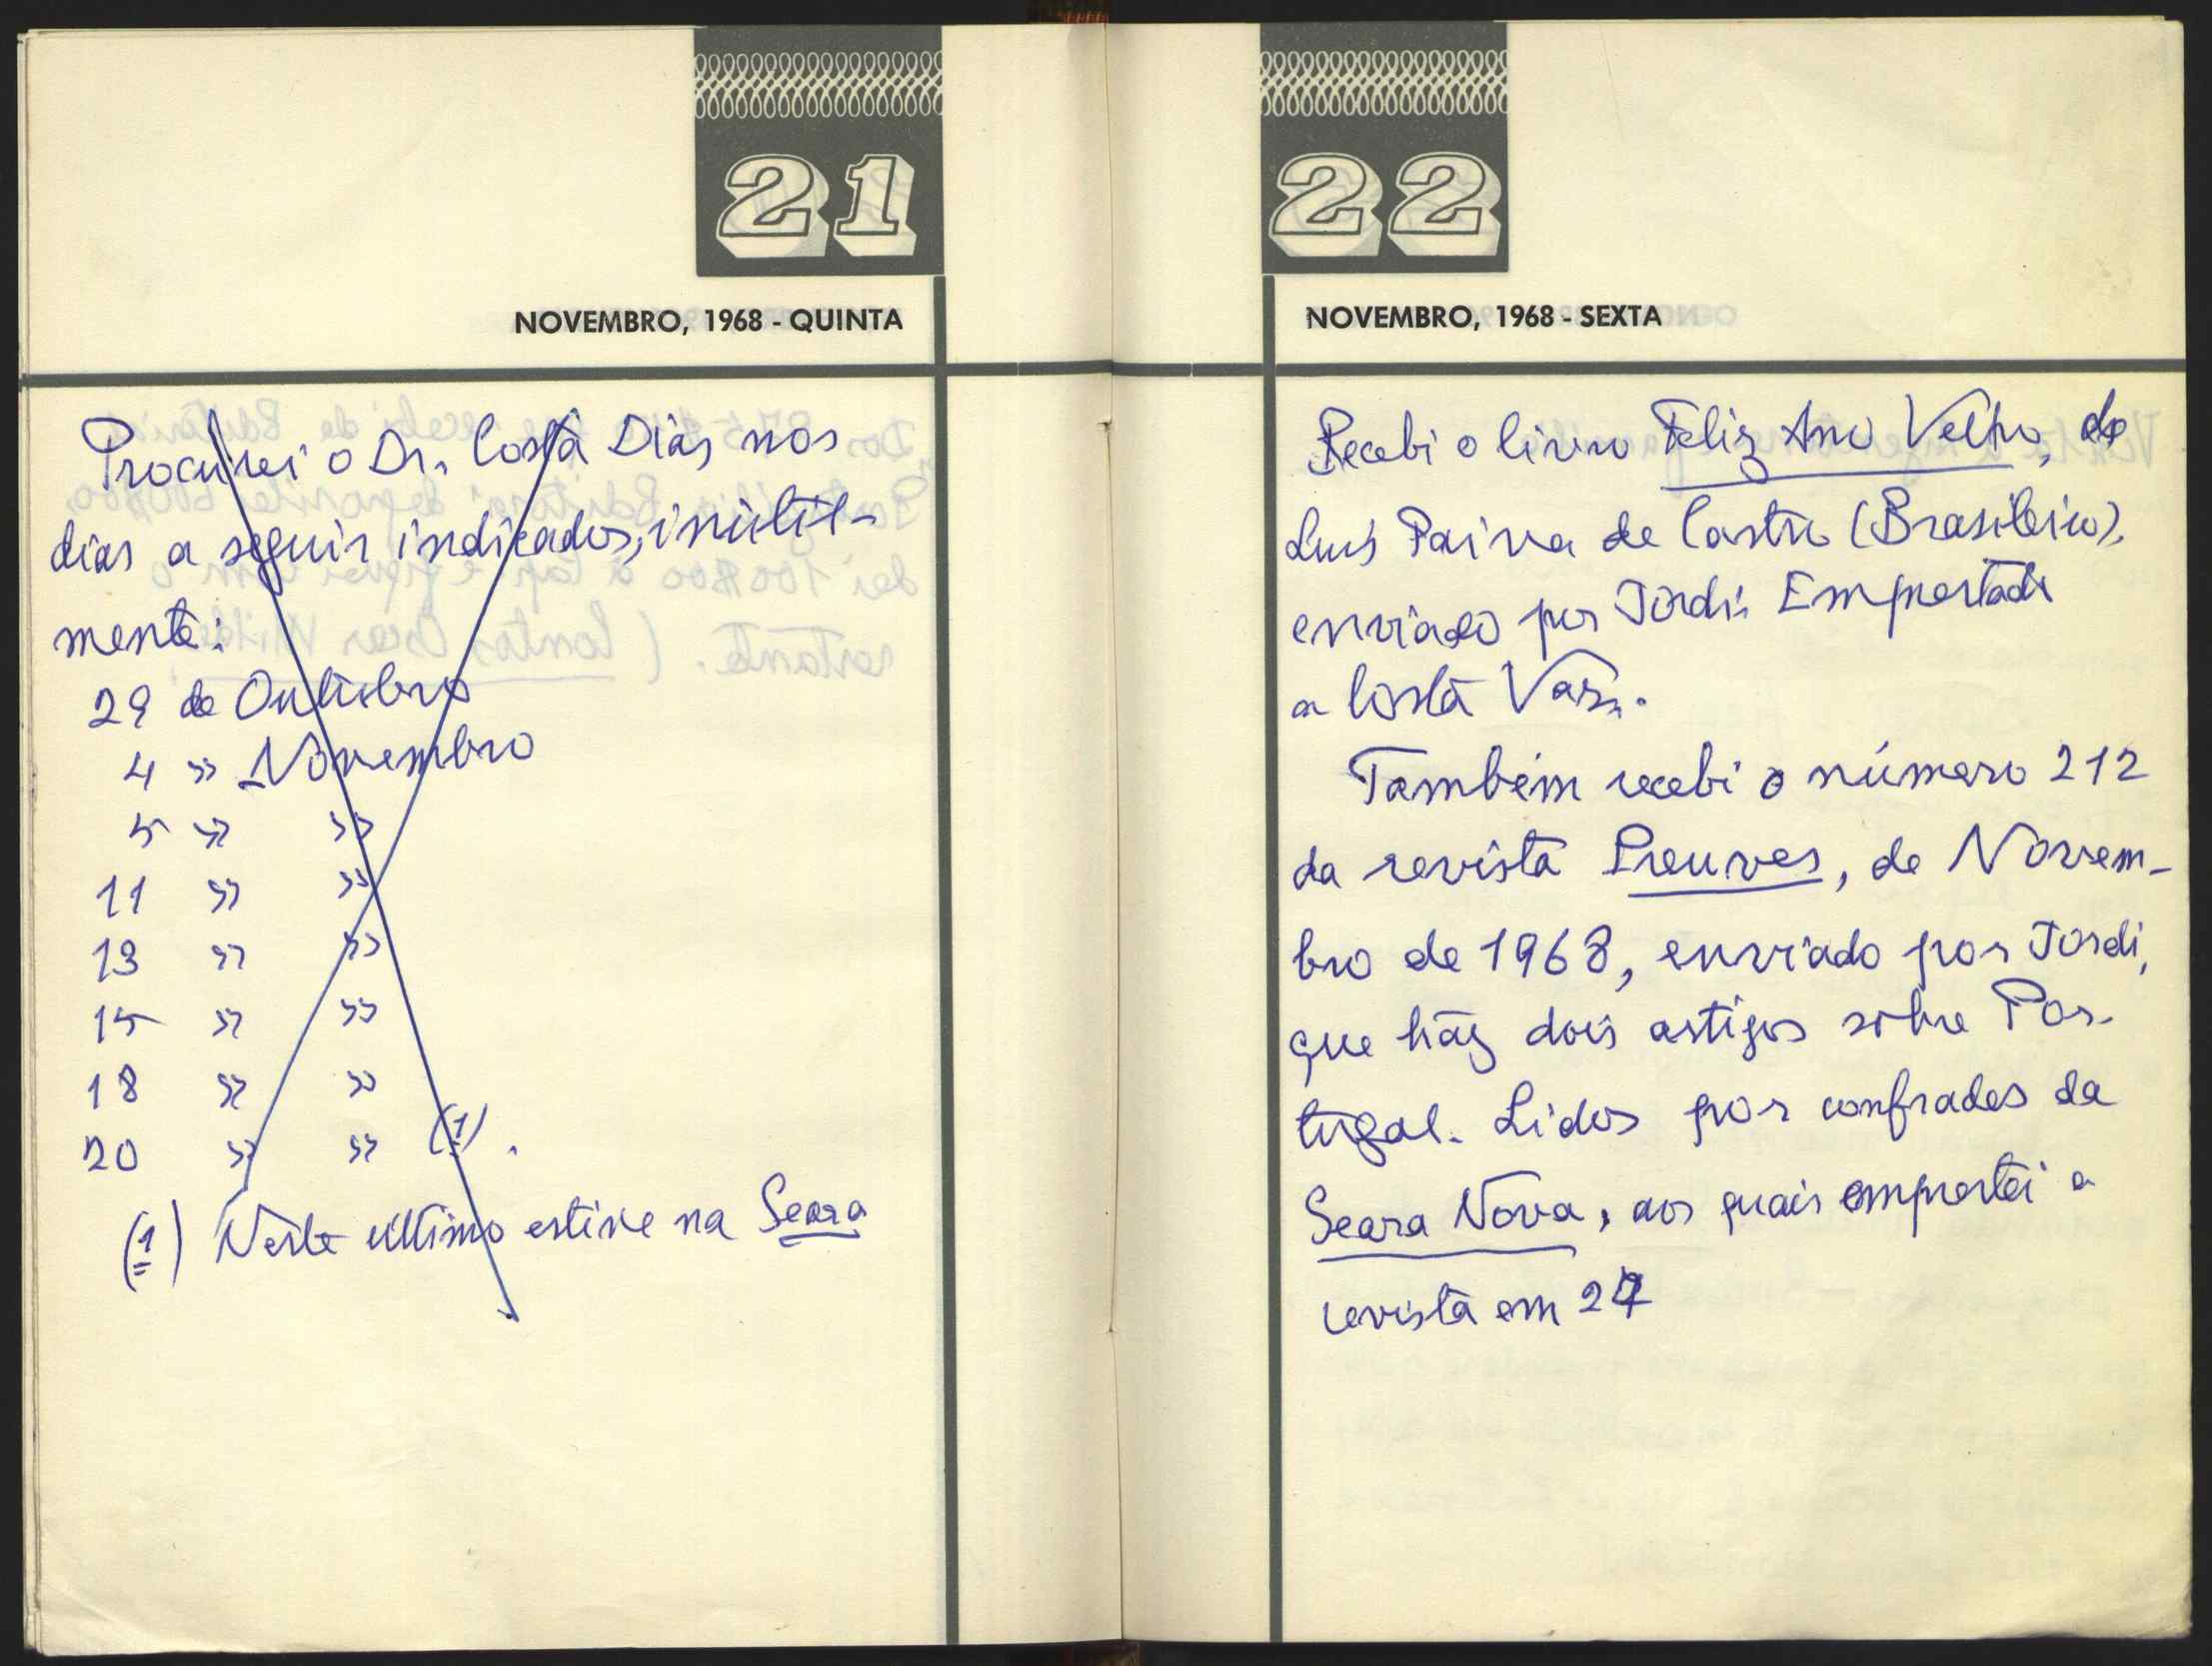 21
NOVEMBRO, 1968 - QUINTA
Procurei o Dr. Costa Dias nos
dias a seguir indicados, inutil-
mente:
29 de Outubro
4 » Novembro
5 » »
11 » »
13 » »
15 » »
18 » »
20 » » (1).
(1) Neste último estive na Seara
22
NOVEMBRO, 1968 - SEXTA
Recebi o livro Feliz Ano Velho, de
Luís Paiva de Castro (Brasileiro),
enviado por Jordi. Emprestado
a Costa Vaz.
Também recebi o número 212
da revista Preuves, de Novem-
bro de 1968, enviado por Jordi,
que traz dois artigos sobre Por-
tugal. Lidos por confrades da
Seara Nova, aos quais emprestei a
revista em 27